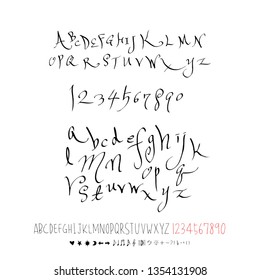 ABCDEFGHIJKLMN
OPQRSTUVWXYZ
1234567890
abcdefghijk
lmnopq
rstuvwxyz
ABCDEFGHIJKLMNOPQRSTUVWXYZ 1234567890
shutterstock.com · 1354131908